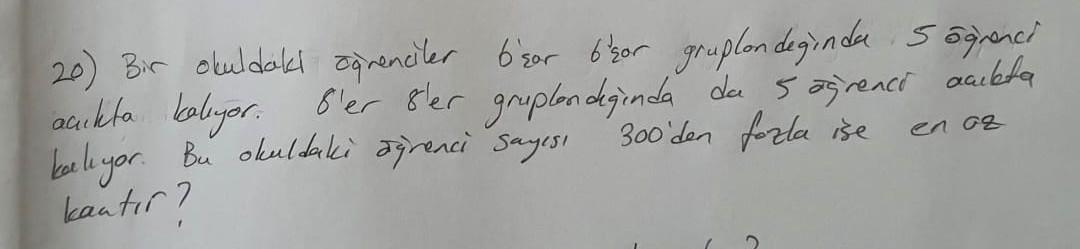 20) Bir okuldaki öğrenciler 6'şar 6'şar gruplandığında 5 öğrenci
açıkta kalıyor. 8'er 8'er gruplandığında da 5 öğrenci açıkta
kalıyor. Bu okuldaki öğrenci sayısı 300'den fazla ise en az
kaçtır?